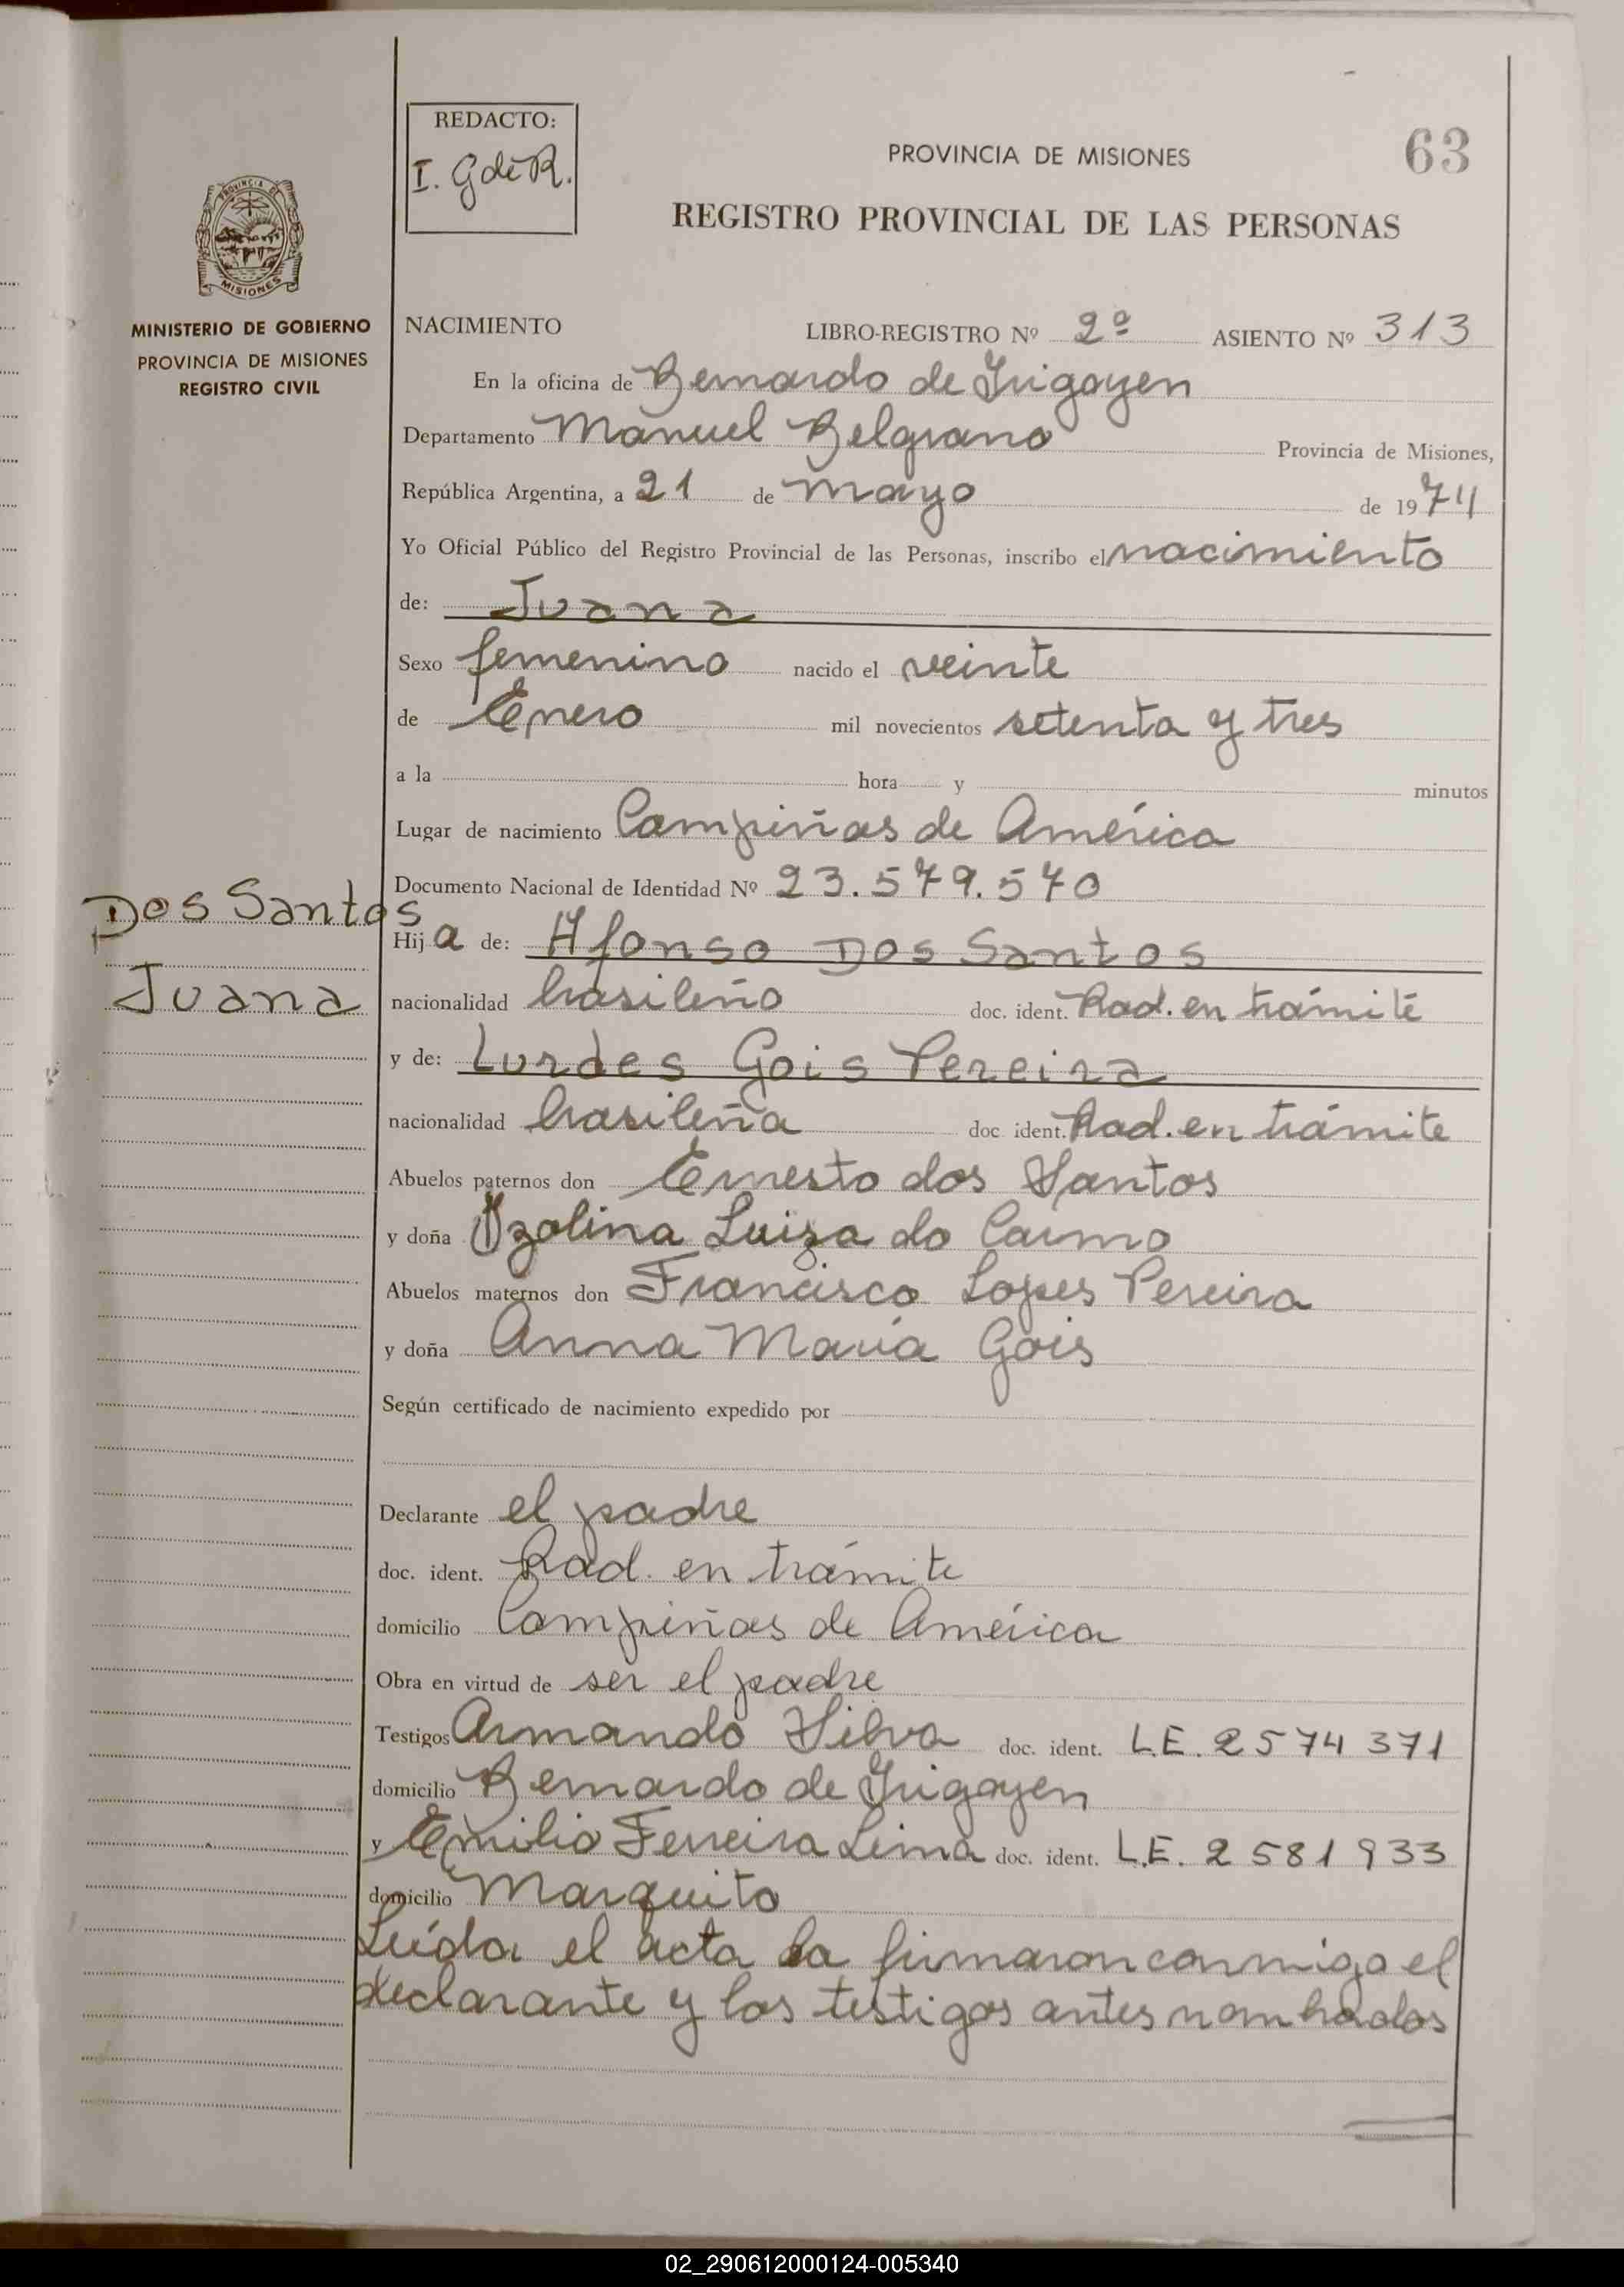 REDACTO:
I. G de R.
PROVINCIA DE MISIONES
63
REGISTRO PROVINCIAL DE LAS PERSONAS
PROVINCIA DE
MISIONES
MINISTERIO DE GOBIERNO
PROVINCIA DE MISIONES
REGISTRO CIVIL
NACIMIENTO LIBRO-REGISTRO Nº 2º ASIENTO Nº 313
En la oficina de Bernardo de Irigoyen
Departamento Manuel Belgrano Provincia de Misiones,
República Argentina, a 21 de Mayo de 1974
Yo Oficial Público del Registro Provincial de las Personas, inscribo el nacimiento
de: Juana
Sexo femenino nacido el veinte
de Enero mil novecientos setenta y tres
a la hora y minutos
Lugar de nacimiento Campiñas de América
Documento Nacional de Identidad Nº 23.579.570
Dos Santos
Juana
Hija de: Afonso Dos Santos
nacionalidad brasileño doc. ident. Rad. en trámite
y de: Lurdes Gois Pereira
nacionalidad brasileña doc. ident. Rad. en trámite
Abuelos paternos don Ernesto dos Santos
y doña Ozolina Luiza do Carmo
Abuelos maternos don Francisco Lopes Pereira
y doña Anna María Gois
Según certificado de nacimiento expedido por
Declarante el padre
doc. ident. Rad. en trámite
domicilio Campiñas de América
Obra en virtud de ser el padre
Testigos Armando Silva doc. ident. L.E. 2574371
domicilio Bernardo de Irigoyen
y Emilio Ferreira Lima doc. ident. L.E. 2581933
domicilio Marquito
Leída el acta la firmaron conmigo el
declarante y los testigos antes nombrados
02_290612000124-005340